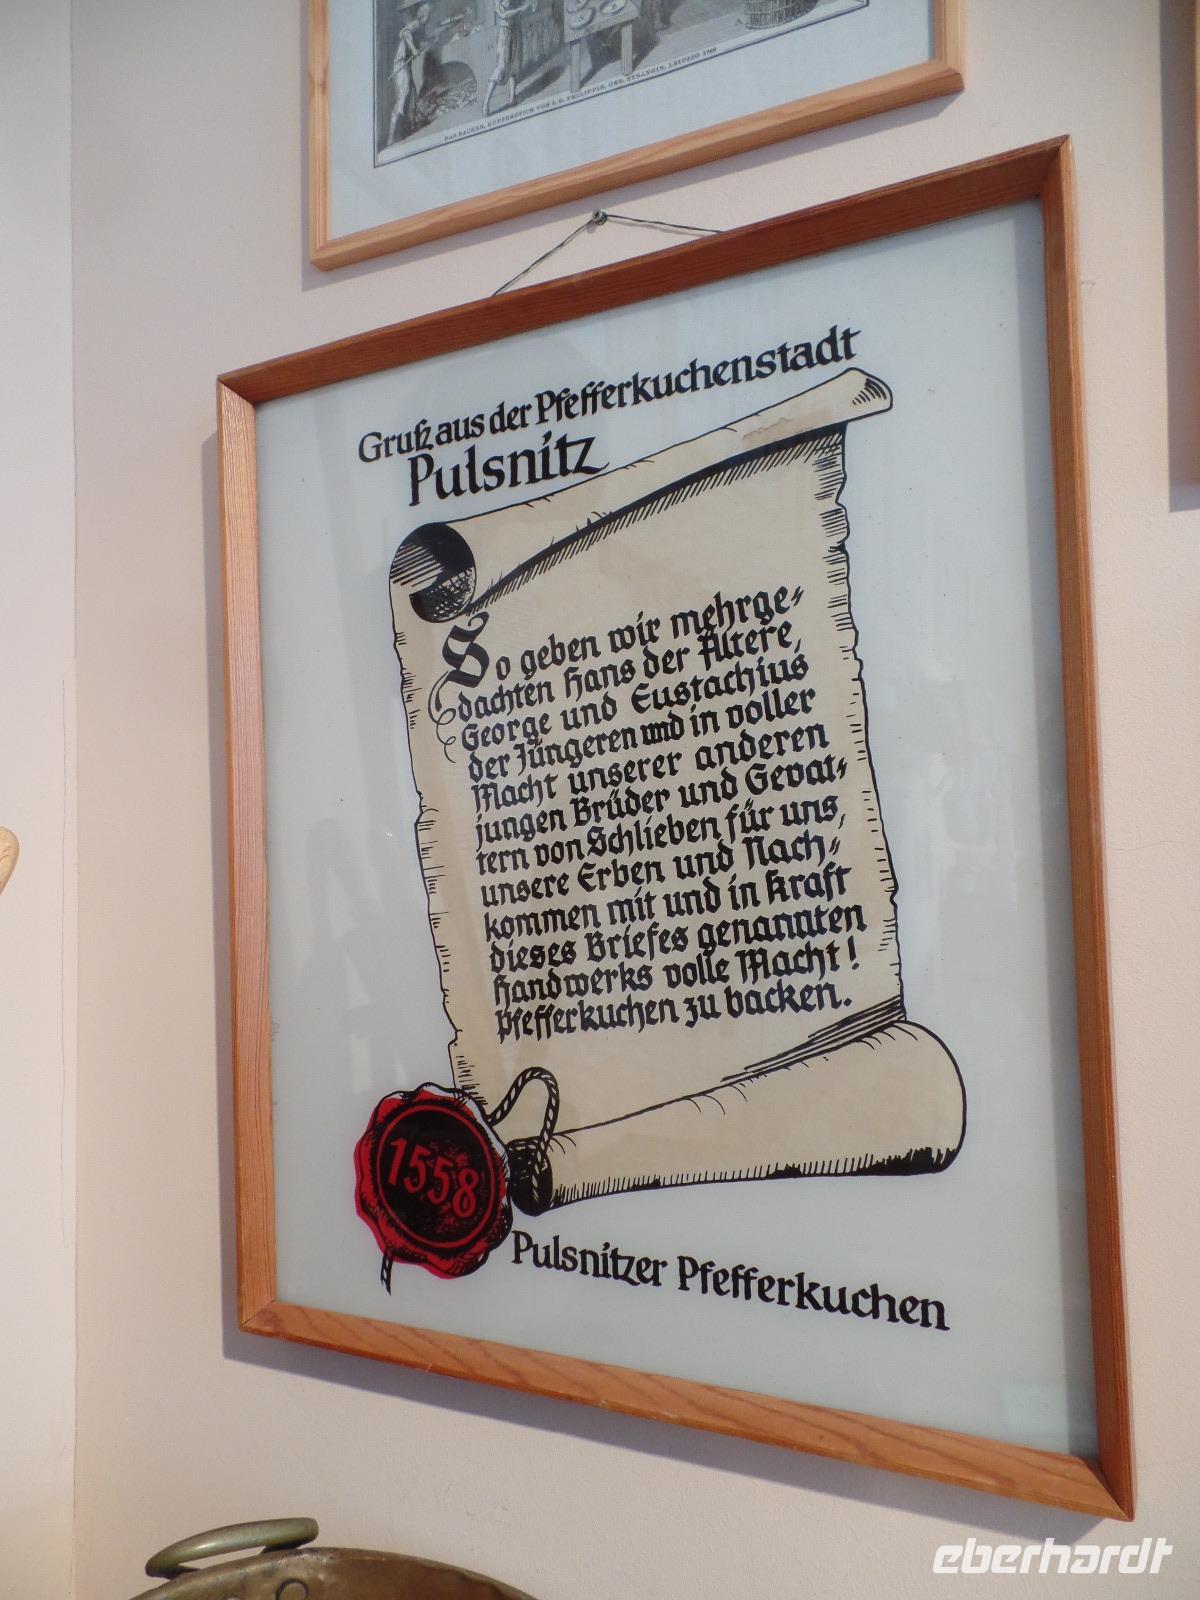 DAS BACKEN, KUPFERSTICH VON I. G. PHILIPPIN, GEB. SYSANGIN, LEIPZIG 1769
Gruß aus der Pfefferkuchenstadt
Pulsnitz
So geben wir mehrge-
dachten Hans der Ältere,
George und Eustachius
der Jüngeren und in voller
Macht unserer anderen
jungen Brüder und Gevat-
tern von Schlieben für uns,
unsere Erben und Nach-
kommen mit und in Kraft
dieses Briefes genannten
Handwerks volle Macht!
Pfefferkuchen zu backen.
1558
Pulsnitzer Pfefferkuchen
eberhardt